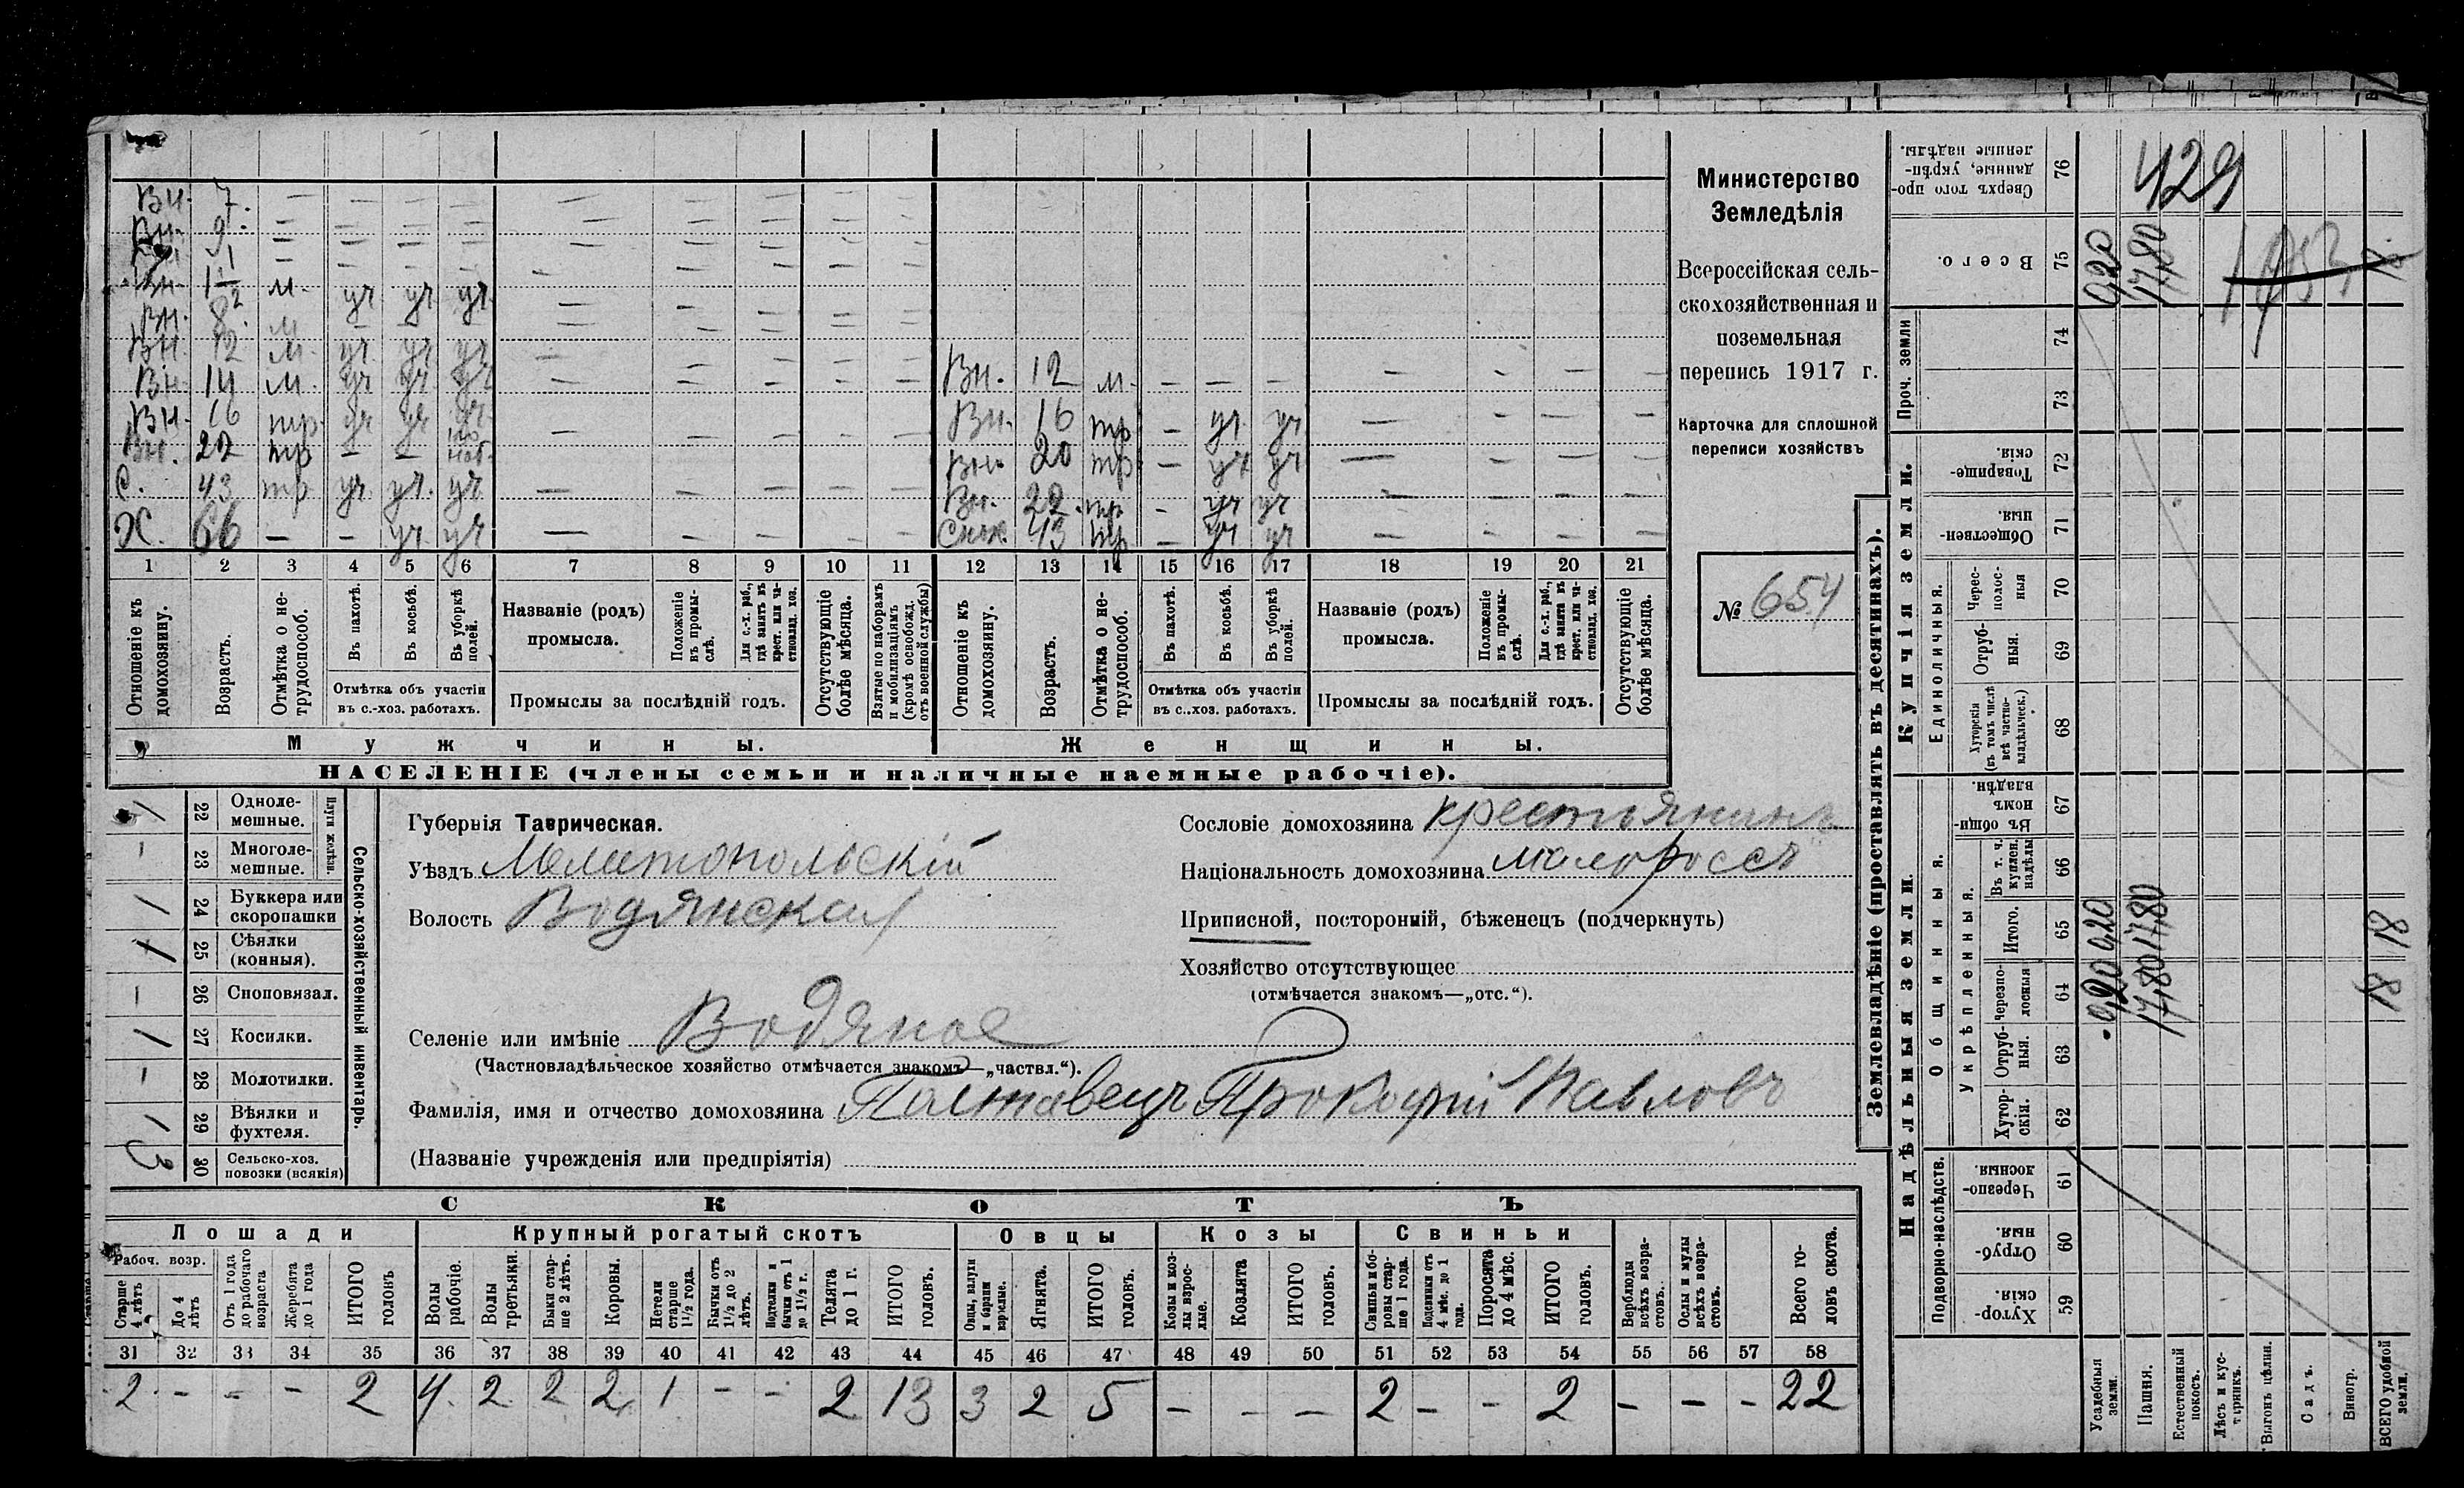 Вн. 7. — — — — — — — — —
Вн. 9. — — — — — — — — —
Вн. 1½ — — — — — — — — —
Вн. 8 м. уч уч уч — — — — —
Вн 12 м. уч уч уч — — — — —
Вн. 14 м. уч уч уч — — — — — Вн. 12 м. — — — — — — —
Вн. 16 тр. уч уч уч — — — — — Вн. 16 тр — уч уч — — — —
Вн. 22 тр — — — — — — — Вн. 20 тр — уч уч — — — —
С. 43 тр уч уч. уч — — — — — Вн. 22 тр — уч уч — — — —
Х. 66 — — уч. уч — — — — — Снх. 43 тр — уч уч — — — —
1 2 3 4 5 6 7 8 9 10 11 12 13 14 15 16 17 18 19 20 21
Отношеніе къ домохозяину.
Возрастъ.
Отмѣтка о не-трудоспособ.
Въ пахотѣ.
Въ косьбѣ.
Въ уборкѣ полей.
Отмѣтка объ участіи
въ с.-хоз. работахъ.
Названіе (родъ)
промысла.
Положеніе въ промы-слѣ.
Для с.-х. раб., гдѣ занятъ въ крест. или ча-стновлад. хоз.
Промыслы за послѣдній годъ.
Отсутствующіе болѣе мѣсяца.
Взятые по наборамъ и мобилизаціямъ (кромѣ освобожд. отъ военной службы)
Отношеніе къ домохозяину.
Возрастъ.
Отмѣтка о не-трудоспособ.
Въ пахотѣ.
Въ косьбѣ.
Въ уборкѣ полей.
Отмѣтка объ участіи
въ с.-хоз. работахъ.
Названіе (родъ)
промысла.
Положеніе въ промы-слѣ.
Для с.-х. раб., гдѣ занята въ крест. или ча-стновлад. хоз.
Промыслы за послѣдній годъ.
Отсутствующіе болѣе мѣсяца.
Мужчины. Женщины.
НАСЕЛЕНІЕ (члены семьи и наличные наемные рабочіе).
Министерство
Земледѣлія
Всероссійская сель-
скохозяйственная и
поземельная
перепись 1917 г.
Карточка для сплошной
переписи хозяйствъ
№ 654
Сельско-хозяйственный инвентарь.
Плуги желѣзн.
1 22 Одноле-мешные.
— 23 Многоле-мешные.
1 24 Буккера или скоропашки
1 25 Сѣялки (конныя).
— 26 Сноповязал.
1 27 Косилки.
— 28 Молотилки.
1 29 Вѣялки и фухтеля.
3 30 Сельско-хоз. повозки (всякія)
Губернія Таврическая.
Уѣздъ Мелитопольскій
Волость Водянская
Селеніе или имѣніе Водяное
(Частновладѣльческое хозяйство отмѣчается знакомъ—„частвл.“).
Фамилія, имя и отчество домохозяина Полтавецъ Прокофій Павловъ
(Названіе учрежденія или предпріятія)
Сословіе домохозяина крестьянинъ
Національность домохозяина малороссъ
Приписной, посторонній, бѣженецъ (подчеркнуть)
Хозяйство отсутствующее
(отмѣчается знакомъ—„отс.“).
СКОТЪ
Лошади Крупный рогатый скотъ Овцы Козы Свиньи
Рабоч. возр.
Старше 4 лѣтъ
До 4 лѣтъ
Отъ 1 года до рабочаго возраста
Жеребята до 1 года
ИТОГО головъ
Волы рабочіе.
Волы третьяки.
Быки стар-ше 2 лѣтъ.
Коровы.
Нетели старше 1½ года.
Бычки отъ 1½ до 2 лѣтъ.
Подтелки и бычки отъ 1 до 1½ г.
Телята до 1 г.
ИТОГО головъ.
Овцы, валухи и бараны взрослые.
Ягнята.
ИТОГО головъ.
Козы и коз-лы взрос-лые.
Козлята
ИТОГО головъ.
Свиньи и бо-ровы стар-ше 1 года.
Подсвинки отъ 4 мѣс. до 1 года.
Поросята до 4 мѣс.
ИТОГО головъ.
Верблюды всѣхъ возра-стовъ.
Ослы и мулы всѣхъ возра-стовъ.
Всего го-ловъ скота.
31 32 33 34 35 36 37 38 39 40 41 42 43 44 45 46 47 48 49 50 51 52 53 54 55 56 57 58
2 — — — 2 4 2 2 2 1 — — 2 13 3 2 5 — — — 2 — — 2 — — — 22
Землевладѣніе (проставлять въ десятинахъ).
Надѣльныя земли.
Купчія земли.
Проч. земли
Подворно-наслѣдств.
Общинныя.
Укрѣпленныя.
Единоличныя.
Сверхъ того про-данные, укрѣп-ленные надѣлы. 76
Всего. 75 0,20 17,80 18
74
73
Товарище-скія. 72
Обществен-ныя. 71
Черес-полос-ныя 70
Отруб-ныя. 69
Хуторскія (въ томъ числѣ всѣ частно-владѣльческ.) 68
Въ общин-номъ владѣн. 67
Въ т. ч. куплен. надѣлы 66
Итого. 65 0,20 17,80 18
Черезпо-лосныя 64 0,20 17,80 18
Отруб-ныя. 63
Хутор-скія. 62
Черезпо-лосныя. 61
Отруб-ныя. 60
Хутор-скія. 59
429
Усадебныя земли.
Пашня.
Естественный покосъ.
Лѣсъ и кус-тарникъ.
Выгонъ цѣлин.
Садъ.
Виногр.
ВСЕГО удобной земли.